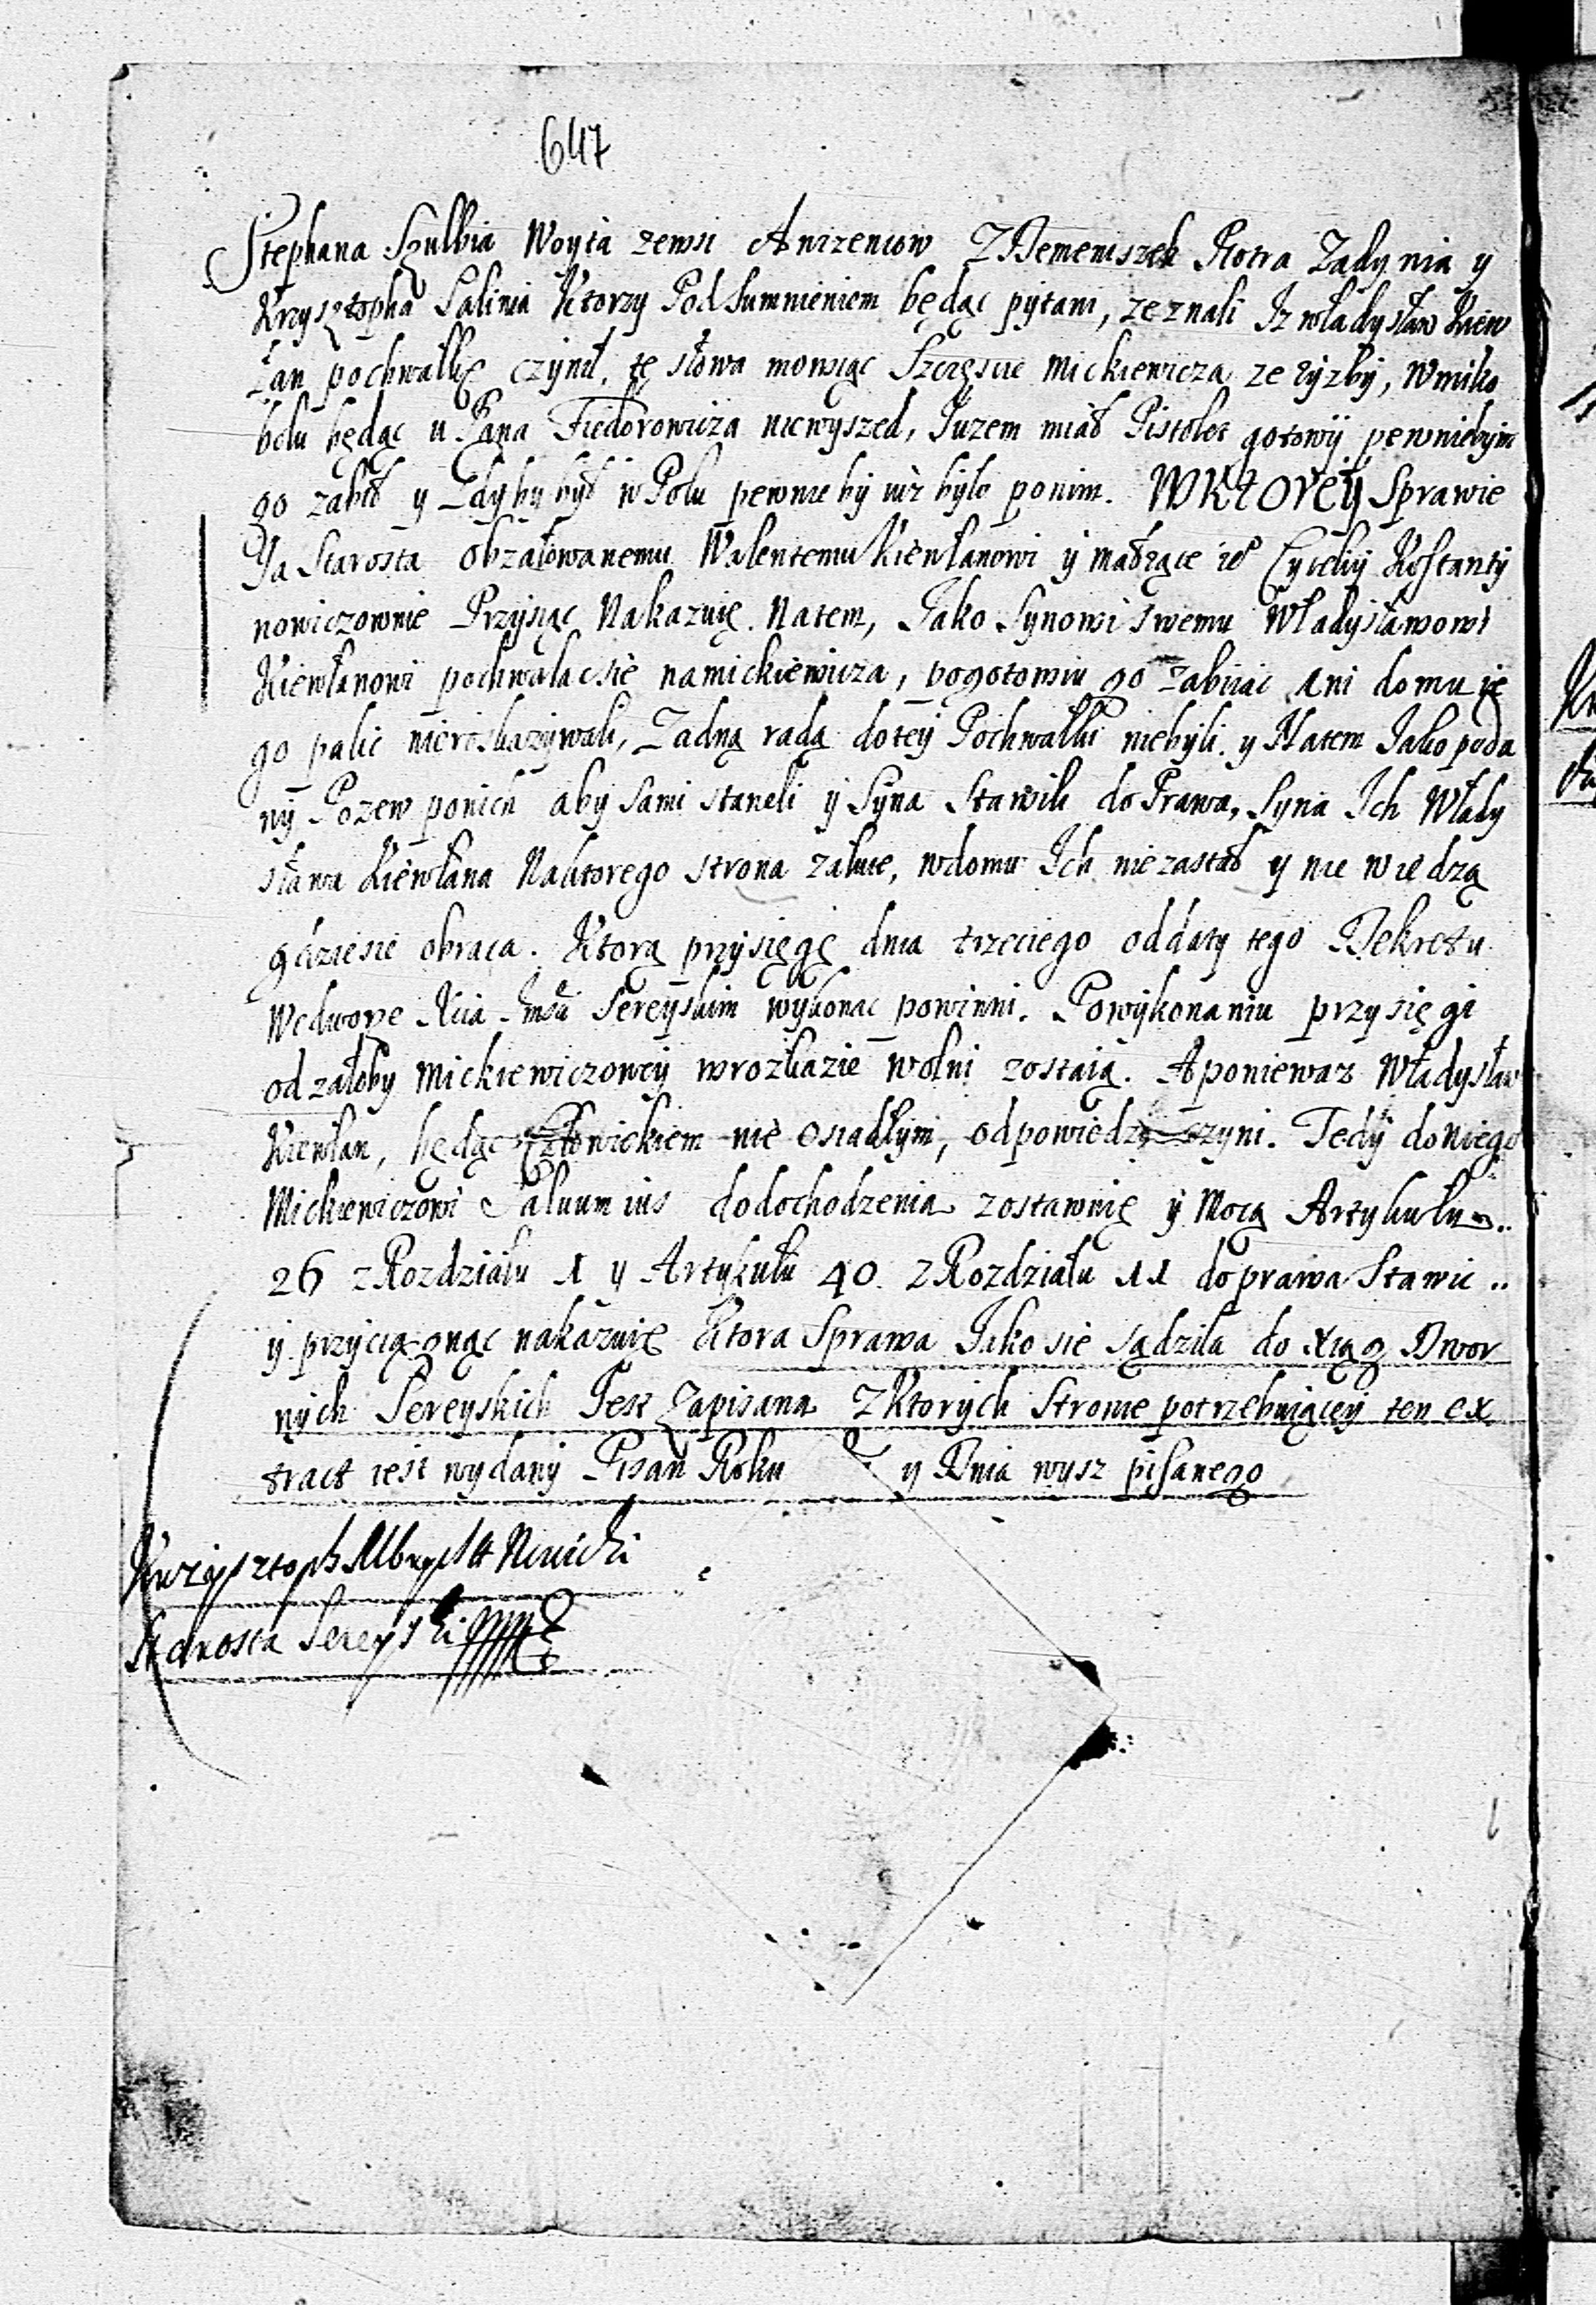 647
Stephana Szulbia Woyta zewsi Anizeniow Z Demeniszek Piotra Zadynia y
Krzysztopha Salinia Ktorzy Pod Sumnieniem będąc pytani, zeznali Iz władysław Kiew
łan pochwałkę czynił, tę słowa mowiąc Szczęscie Mickiewicza ze zyzby, W miko
bolu będąc u Pana Fiedorowicza niewyszed, Iuzem miał Pistolet gotowy pewniebym
go zabił y Zdyby był w Polu pewnie by iuz było ponim. W KTOREY Sprawie
Ja Starosta obzałowanemu Walentemu Kiewłanowi y małzące ie° Cyceliy Kostanty
nowiczownie Przysiąc Nakazuię. Natem, Jako Synowi swemu Władysławowi
Kiewłanowi pochwalac sie na mickiewicza, pogotowiu go zabiiac ani domu ie
go palic nieroskazywali, Zadną radą dotey Pochwałki niebyli. y Natem Jako poda
ny Pozew ponich aby sami staneli y Syna Stawili do Prawa, Syna Ich Włady
sława Kiewłana Naktorego strona załuie, wdomu Ich nie zastał y nie wiedzą
gdzie sie obraca. Ktorą przysięgę dnia trzeciego oddaty tego Dekretu
Wedworze Sereyskim wykonac powinni. Powykonaniu przysięgi
od załoby Mickiewiczowey wrozkazie wolni zostaią. Aponiewaz Władysław
Kiewłan, będąc Człowiekiem nie osiadłym, odpowiedzy czyni. Tedy doniego
Mickiewiczowi Saluum ius dodochodzenia zostawuię y Mocą Artykułu ..
26 z Rozdziału 1 y Artykułu 40. z Rozdziału 11 do prawa Stawic ..
y przyciągnąc nakazuię Ktora Sprawa Jako sie sądziła do Xiąg Dwor
nych Sereyskich Jest Zapisana z Ktorych Stronie potrzebuiącey ten ex
tract iest wydany Pisan Roku y Dnia wysz pisanego
Krzysztoph
Starosta Sereyski